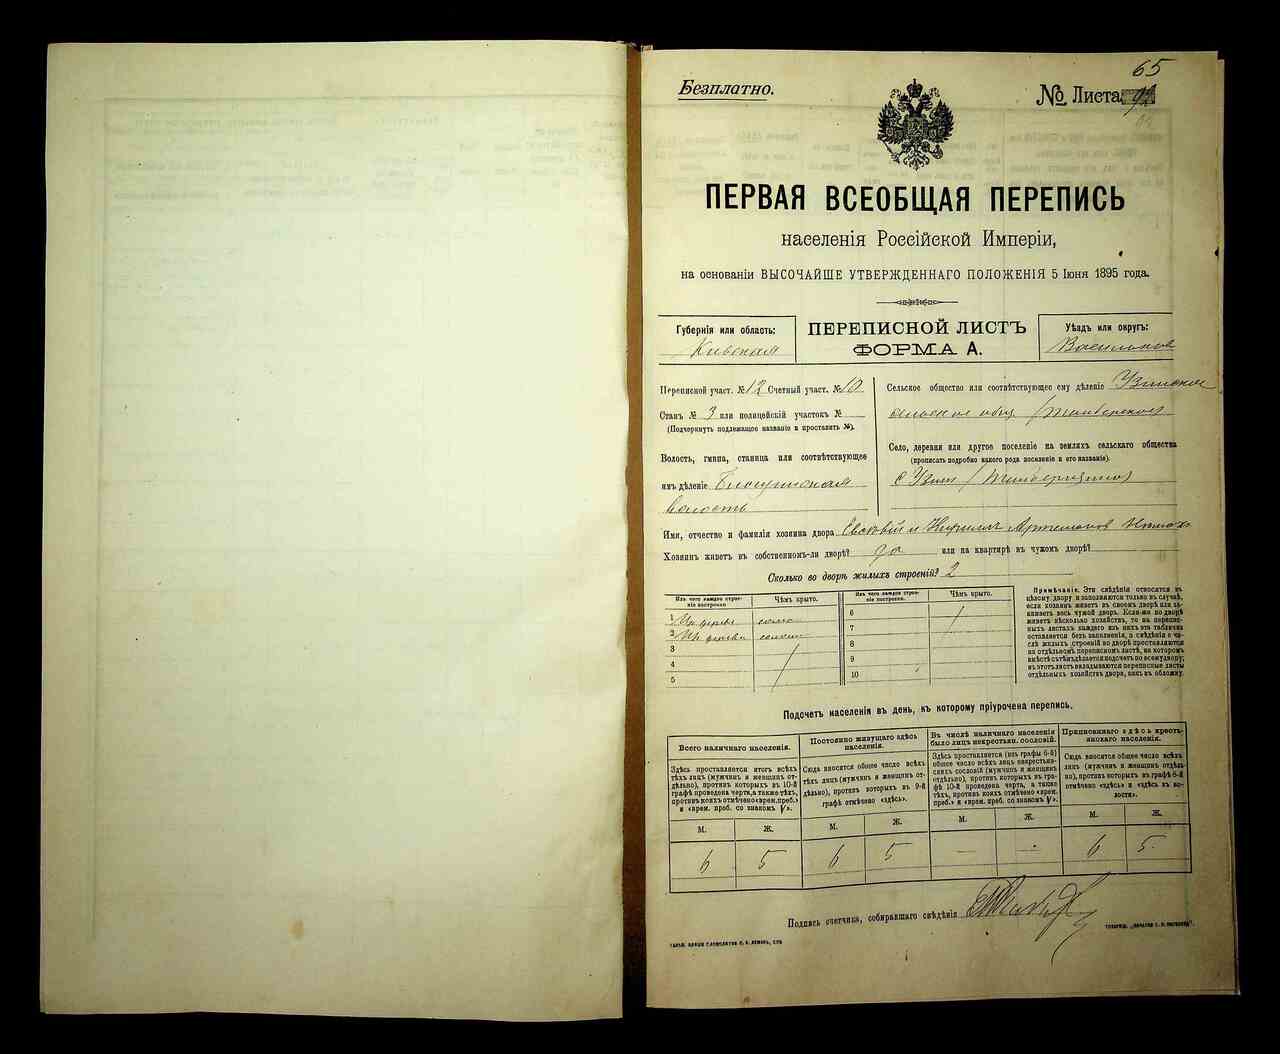 65
Безплатно.
№ Листа 92
ПЕРВАЯ ВСЕОБЩАЯ ПЕРЕПИСЬ
населенія Россійской Имперіи,
на основаніи ВЫСОЧАЙШЕ УТВЕРЖДЕННАГО ПОЛОЖЕНІЯ 5 Іюня 1895 года.
Губернія или область:
Кіевская
ПЕРЕПИСНОЙ ЛИСТЪ
ФОРМА А.
Уѣздъ или округъ:
Васильков
Переписной участ. № 12 Счетный участ. № 10
Станъ № 3 или полицейскій участокъ №
(Подчеркнуть подлежащее названіе и проставить №).
Волость, гмина, станица или соотвѣтствующее
имъ дѣленіе
волость
Сельское общество или соотвѣтствующее ему дѣленіе Узинское
сельское общ
Село, деревня или другое поселеніе на земляхъ сельскаго общества
(прописать подробно какого рода поселеніе и его названіе).
с Узин
Имя, отчество и фамилія хозяина двора Евсевій и Кириллъ Артемовы
Хозяинъ живетъ въ собственномъ-ли дворѣ? да или на квартирѣ въ чужомъ дворѣ?
Сколько во дворѣ жилыхъ строеній? 2
Изъ чего каждое строеніе построено
Чѣмъ крыто.
1 Из дерева солом
2 Из дерева солом
3
4
5
Изъ чего каждое строеніе построено.
Чѣмъ крыто.
6
7
8
9
10
Примѣчаніе. Эти свѣдѣнія относятся къ
цѣлому двору и заполняются только въ случаѣ,
если хозяинъ живетъ въ своемъ дворѣ или занимаетъ
весь чужой дворъ. Если-же во дворѣ
живетъ нѣсколько хозяйствъ, то на переписныхъ
листахъ каждаго изъ нихъ эта табличка
оставляется безъ заполненія, а свѣдѣнія о числѣ
жилыхъ строеній во дворѣ проставляются
на отдѣльномъ переписномъ листѣ, на которомъ
вмѣстѣ съ тѣмъ дѣлается подсчетъ по всему двору;
въ этотъ листъ вкладываются переписные листы
отдѣльныхъ хозяйствъ двора, какъ въ обложку.
Подсчетъ населенія въ день, къ которому пріурочена перепись.
Всего наличнаго населенія.
Здѣсь проставляется итогъ всѣхъ
тѣхъ лицъ (мужчинъ и женщинъ отдѣльно),
противъ которыхъ въ 10-й
графѣ проведена черта, а также тѣхъ,
противъ коихъ отмѣчено «врем. преб.»
и «врем. преб. со знакомъ V».
М. Ж.
6 5
Постоянно живущаго здѣсь
населенія.
Сюда вносится общее число всѣхъ
тѣхъ лицъ (мужчинъ и женщинъ отдѣльно),
противъ которыхъ въ 9-й
графѣ отмѣчено «здѣсь».
М. Ж.
6 5
Въ числѣ наличнаго населенія
было лицъ некрестьян. сословій.
Здѣсь проставляется (изъ графы 6-й)
общее число всѣхъ лицъ некрестьянскихъ
сословій (мужчинъ и женщинъ
отдѣльно), противъ которыхъ въ графѣ
10-й проведена черта, а также
тѣхъ, противъ коихъ отмѣчено «врем.
преб.» и «врем. преб. со знакомъ V».
М. Ж.
— -
Приписаннаго здѣсь крестьянскаго
населенія.
Сюда вносится общее число всѣхъ
лицъ (мужчинъ и женщинъ отдѣльно),
противъ которыхъ въ графѣ 8-й
отмѣчено «здѣсь» и «здѣсь въ волости».
М. Ж.
6 5
Подпись счетчика, собиравшаго свѣдѣнія